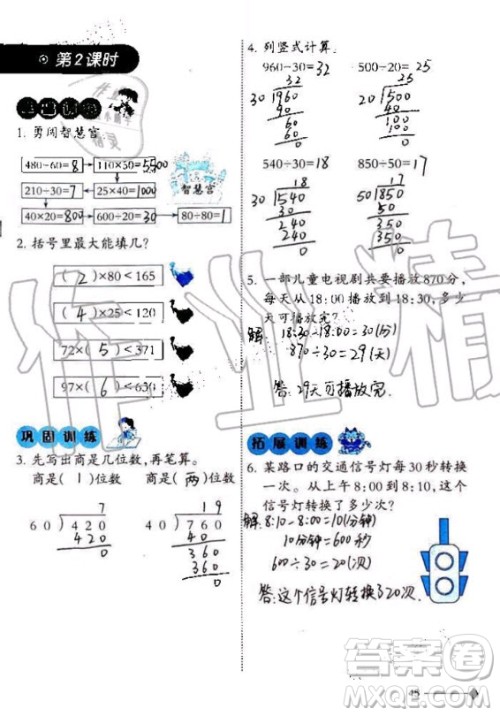 第2课时
1. 勇闯智慧宫
480÷60=8 110×50=5500
210÷30=7 25×40=1000 智慧宫
40×20=800 600÷20=30 80÷80=1
2. 括号里最大能填几?
( 2 )×80<165
( 4 )×25<120
72×( 5 )<371
97×( 6 )<630
巩固训练
3. 先写出商是几位数,再笔算。
商是( 1 )位数 商是( 两 )位数
7
60 420
420
0
19
40 760
40
360
360
0
4. 列竖式计算.
960÷30=32 500÷20=25
32
30 1960
90
60
60
0
25
20 1500
40
100
100
0
540÷30=18 850÷50=17
18
30 1540
30
240
240
0
17
50 1850
50
350
350
0
5. 一部儿童电视剧共要播放870分,
每天从18:00播放到18:30,多少
天可播放完?
解 18:30-18:00=30(分)
870÷30=29(天)
答:29天可播放完.
拓展训练
6. 某路口的交通信号灯每30秒转换
一次。从上午8:00到8:10,这个
信号灯转换了多少次?
解: 8:10-8:00=10(分钟)
10分钟=600秒
600÷30=20(次)
答:这个信号灯转换了20次.
作业精
答案圈
MXQE.COM